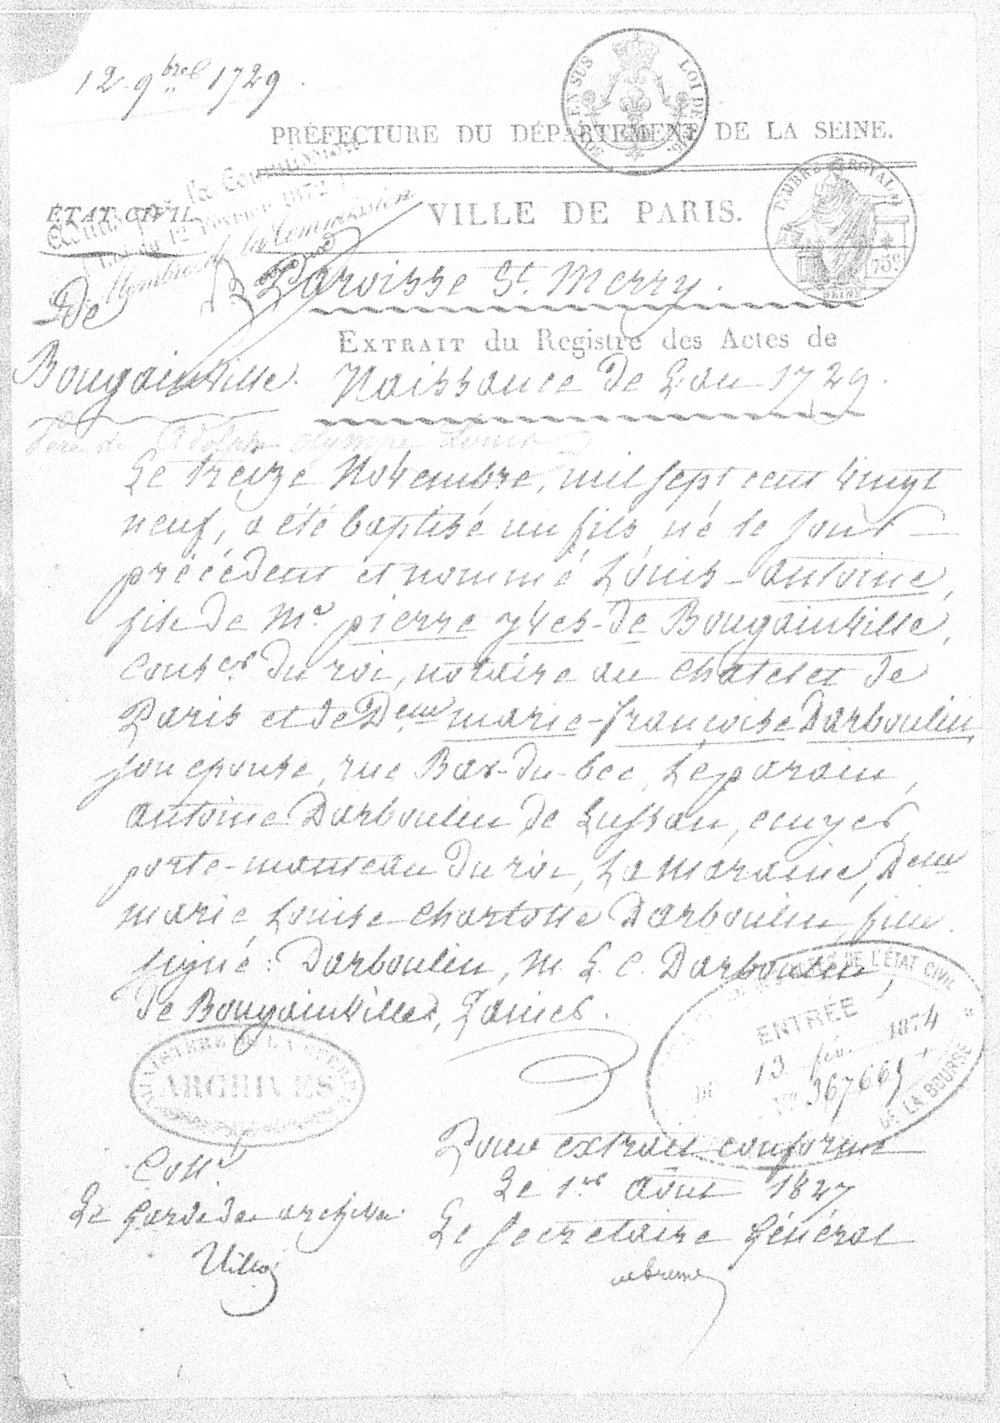 12 9bre 1729
EN SUS LOI DE
PRÉFECTURE DU DÉPARTEMENT DE LA SEINE.
TIMBRE ROYAL
75c
SEINE
ÉTAT CIVIL
VILLE DE PARIS.
la Commission
Loi du 12 février 1872
Membre de la Commission
Paroisse St. Merry.
De
EXTRAIT du Registre des Actes de
Bougainville.
Naissance de L'an 1729.
Père de Adolphe Olympe Louis
Le treize Novembre, mil sept cent vingt
neuf, a été baptisé un fils, né le jour
précédent et nommé Louis-antoine,
fils de Mr pierre yves-de Bougainville,
Conser du roi, notaire au chatelet de
Paris et de Delle marie-françoise Darboulin
son epouse, rue Bar-du-bec, Le parain,
antoine Darboulin de Lussan, ecuyer
porte-manteau du roi, La maraine, Delle
marie Louise Charlotte Darboulin, fille
signé: Darboulin, M. L. C. Darboulin,
de Bougainville,
DE L'ÉTAT CIVIL
ENTRÉE
13 fév. 1874
No 367669
DE LA BOURSE
MINISTÈRE DE LA GUERRE
ARCHIVES
Pour extrait conforme
Collé
Le 1er Août 1827
Le Garde des archives
Le Secretaire Général